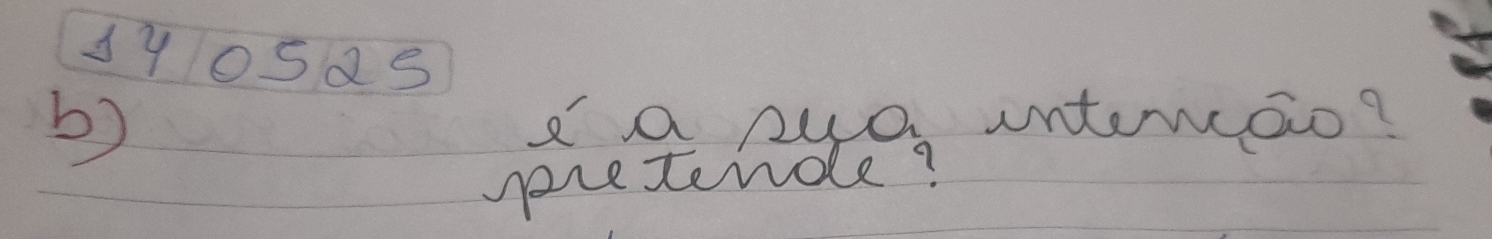 14/05/25
b) é a sua intenção?
pretende?